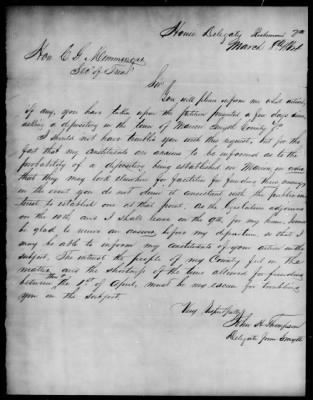 House Delegates Richmond Va
March 8th/64
Hon C. G. Memminger
Sec' of Treas'
Sir
You will please inform me what action
if any, you have taken upon the petition presented a few days since
asking a depository in the town of Marion Smyth County Va
I should not have troubled you with this request, but for the
fact that my constituents are anxious to be informed as to the
probability of a depository being established in Marion, in order
that they may look elsewhere for facilities for funding their money
in the event you do not deem it consistent with the public in-
terest to establish one at that point. As the Legislature adjourns
on the 10th and I shall leave on the 9th for my home, would
be glad to receive an answer before my departure, so that I
may be able to inform my constituents of your action on the
subject. The interest the people of my County feel in the
matter, and the shortness of the time allowed for funding
between this & 1st of April, must be my excuse for troubling
you on the subject.
Very Respectfully
John H. Thompson
Delegate from Smyth